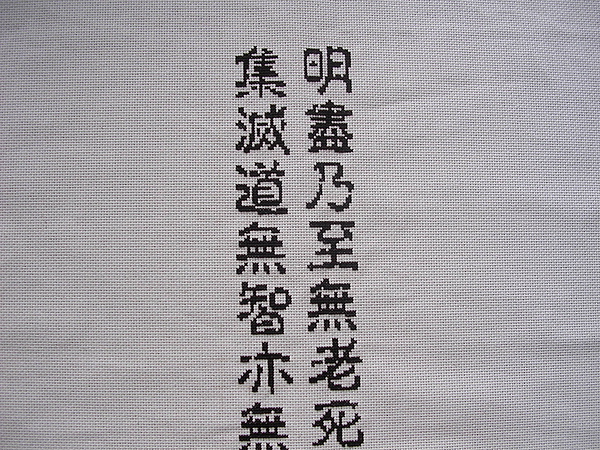 明盡乃至無老死
集滅道無智亦無